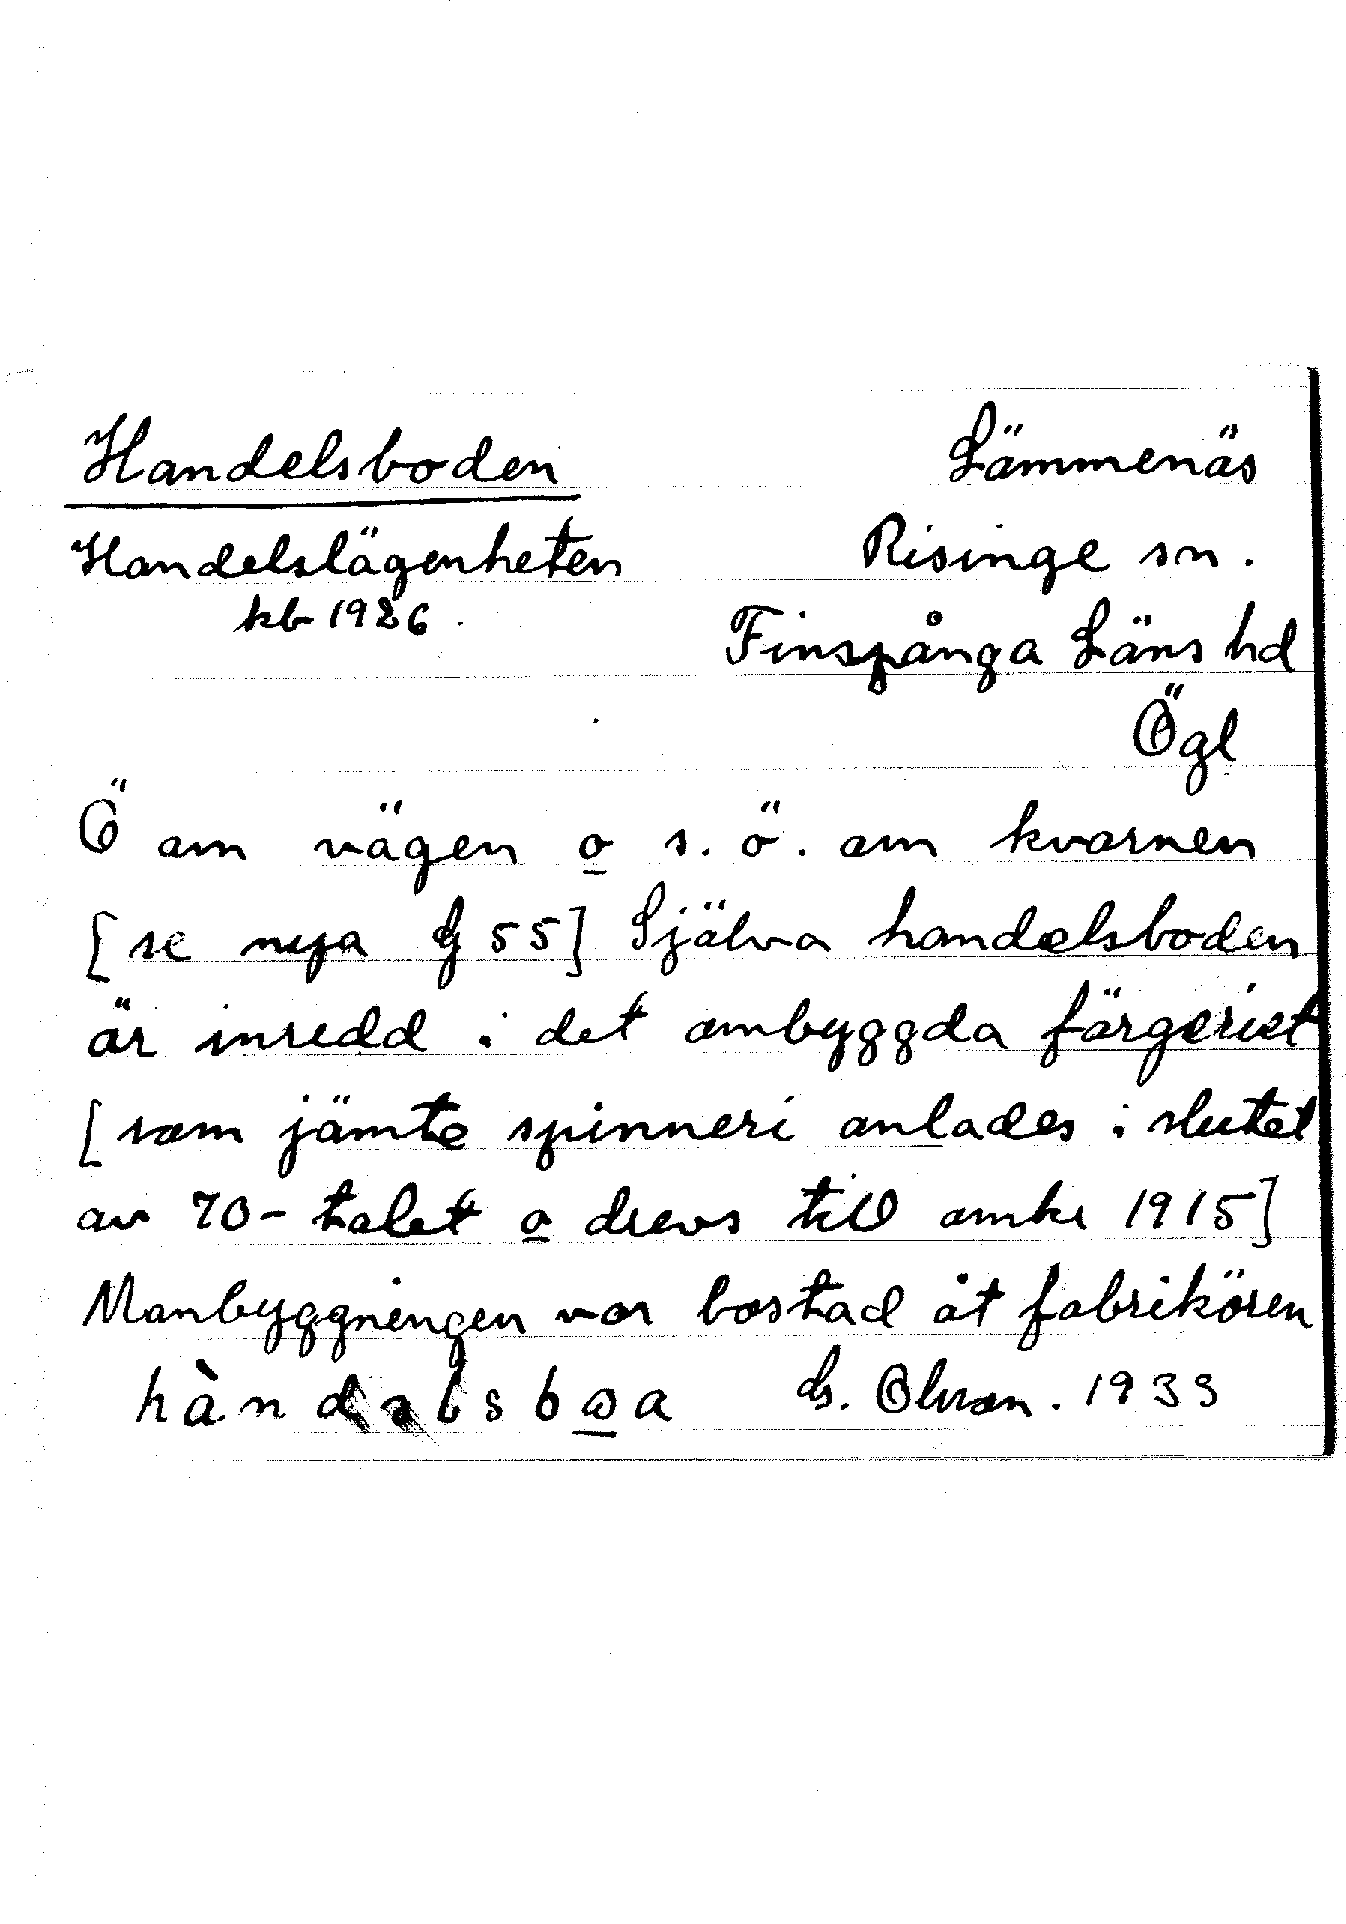 Handelsboden
Lämmenäs
Handelslägenheten
Risinge sn.
kb 1926.
Finspånga Läns hd
Ögl
Ö om vägen o s.ö. om kvarnen
[se nya G 55] Själva handelsboden
är inredd i det ombyggda färgeriet
[som jämte spinneri anlades i slutet
av 70-talet o drevs till omkr 1915]
Manbyggningen var bostad åt fabrikören
G. Olsson. 1933